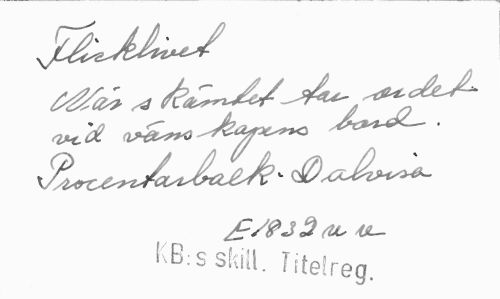 Flicklivet
När skämtet tar ordet
vid vänskapens bord.
Procentarbalk. Dalvisa
E 1832 u v
KB:s skill. Titelreg.